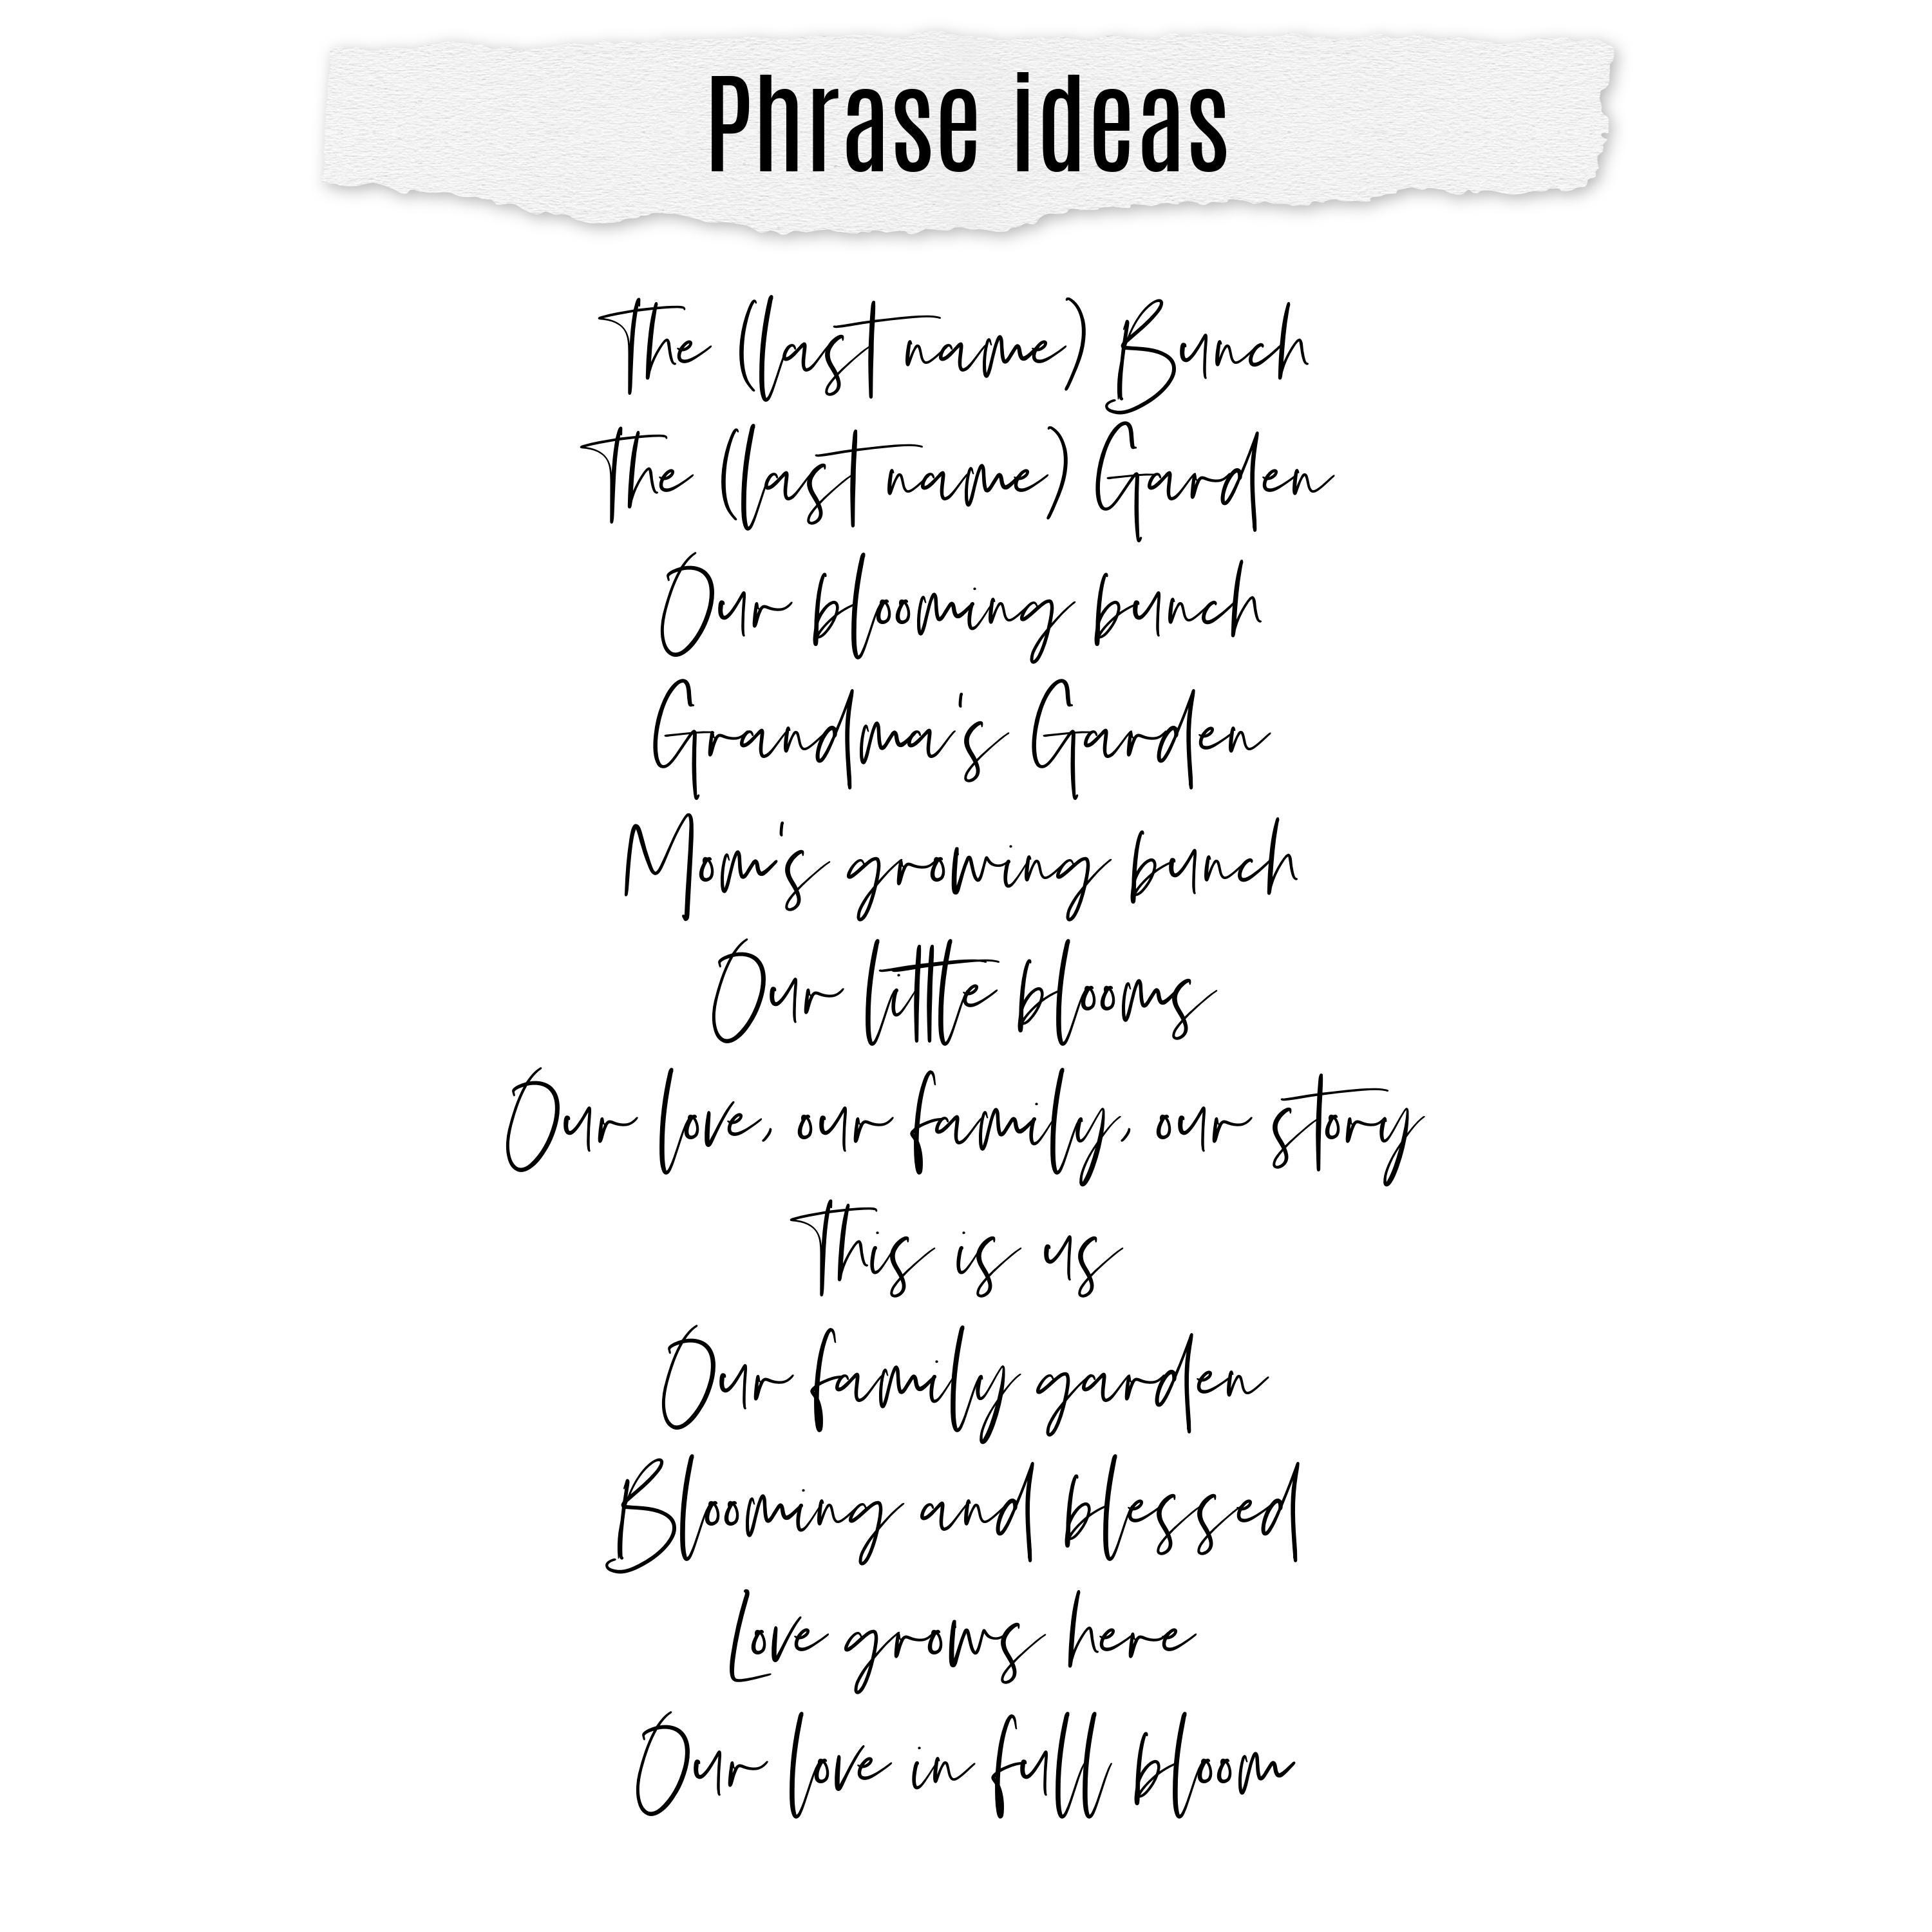 Phrase ideas
The (last name) Bunch
The (last name) Garden
Our blooming bunch
Grandma's Garden
Mom's growing bunch
Our little blooms
Our love, our family, our story
This is us
Our family garden
Blooming and blessed
Love grows here
Our love in full bloom